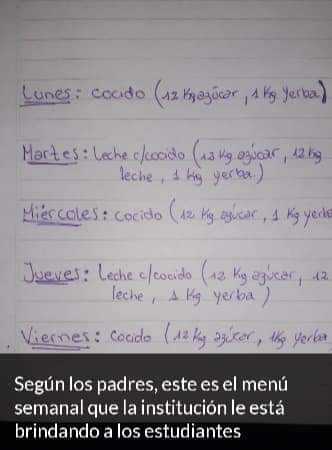 Lunes: Cocido (12 Kg azúcar, 1 Kg Yerba)
Martes: Leche c/cocido (12 Kg azúcar, 12 Kg
leche, 1 Kg yerba.)
Miércoles: Cocido (12 Kg azúcar, 1 Kg yerba
Jueves: Leche c/cocido (12 Kg azúcar, 12
leche, 1 Kg yerba)
Viernes: Cocido (12 Kg azúcar, 1Kg yerba
Según los padres, este es el menú
semanal que la institución le está
brindando a los estudiantes